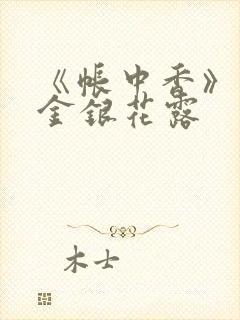 《帐中香》
金银花露
木士